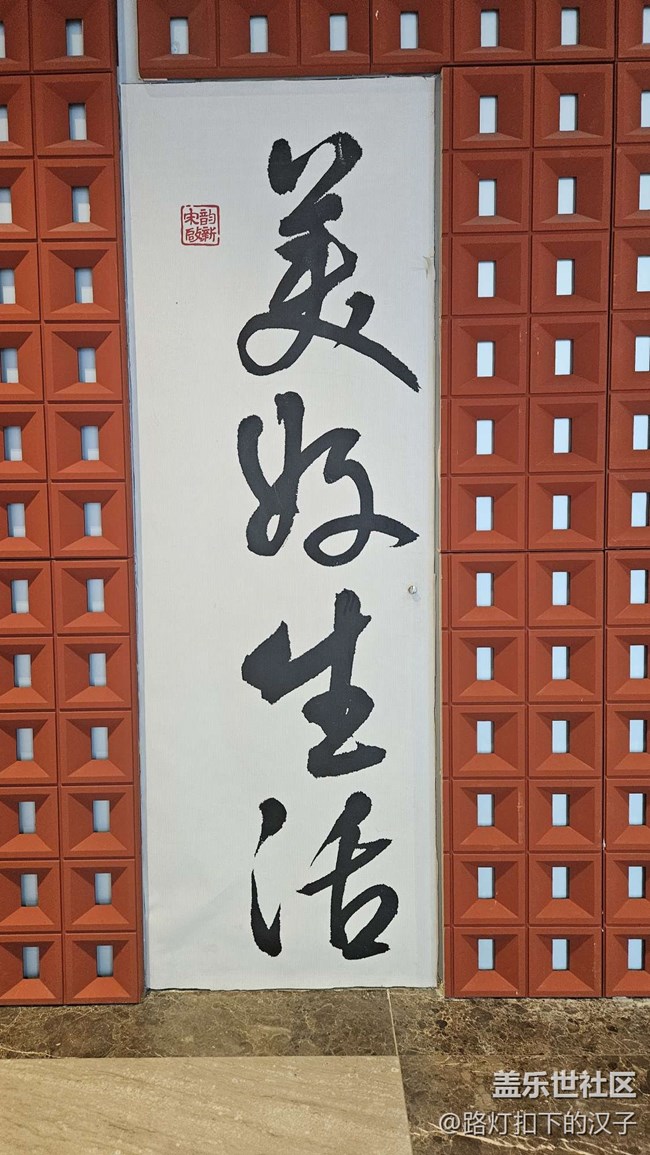 美好生活
宋韵
启新
盖乐世社区
@路灯扣下的汉子